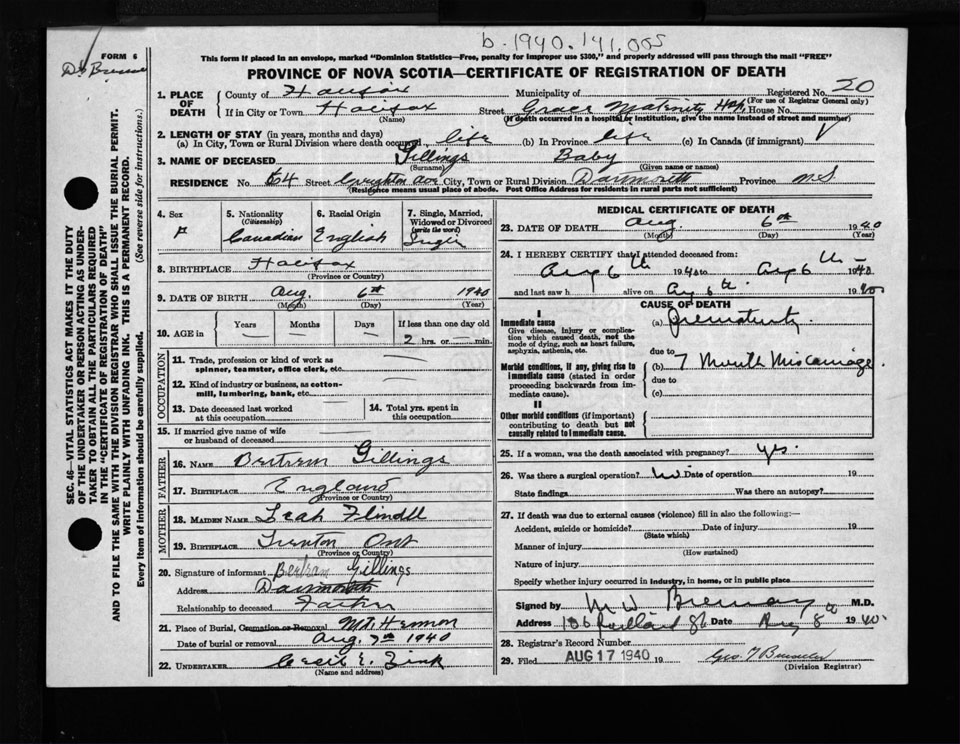 b.1940.141.005
FORM 6
This form if placed in an envelope, marked "Dominion Statistics—Free, penalty for improper use $300," and properly addressed will pass through the mail "FREE"
PROVINCE OF NOVA SCOTIA—CERTIFICATE OF REGISTRATION OF DEATH
1. PLACE OF DEATH
County of Halifax Municipality of Registered No. 20
(For use of Registrar General only)
If in City or Town Halifax Street Grace Maternity Hosp. House No.
(Name) (If death occurred in a hospital or institution, give the name instead of street and number)
2. LENGTH OF STAY (in years, months and days)
(a) In City, Town or Rural Division where death occurred life (b) In Province life (c) In Canada (if immigrant)
3. NAME OF DECEASED Gillings Baby
(Surname) (Given name or names)
RESIDENCE No. 64 Street Creighton Ave City, Town or Rural Division Dartmouth Province N.S
(Residence means usual place of abode. Post Office Address for residents in rural parts not sufficient)
4. Sex F
5. Nationality (Citizenship) Canadian
6. Racial Origin English
7. Single, Married, Widowed or Divorced (write the word) Single
8. BIRTHPLACE Halifax
(Province or Country)
9. DATE OF BIRTH Aug. 6th 1940
(Month) (Day) (Year)
10. AGE in Years Months Days If less than one day old
2 hrs. or min.
OCCUPATION
11. Trade, profession or kind of work as spinner, teamster, office clerk, etc.
12. Kind of industry or business, as cotton-mill, lumbering, bank, etc.
13. Date deceased last worked at this occupation
14. Total yrs. spent in this occupation
15. If married give name of wife or husband of deceased
FATHER
16. NAME Bertram Gillings
17. BIRTHPLACE England
(Province or Country)
MOTHER
18. MAIDEN NAME Leah Flindll
19. BIRTHPLACE Trenton Ont
(Province or Country)
20. Signature of informant Bertram Gillings
Address Dartmouth
Relationship to deceased Father
21. Place of Burial, Cremation or Removal Mt Hermon
Date of burial or removal Aug. 7th 1940
22. UNDERTAKER Cecil E. Zink
(Name and address)
MEDICAL CERTIFICATE OF DEATH
23. DATE OF DEATH Aug. 6th 1940
(Month) (Day) (Year)
24. I HEREBY CERTIFY that I attended deceased from:
Aug 6th 1940 to Aug 6th 1940
and last saw h alive on Aug 6th. 1940
CAUSE OF DEATH
I
Immediate cause
Give disease, injury or complication which caused death, not the mode of dying, such as heart failure, asphyxia, asthenia, etc.
(a) Prematurity.
due to
Morbid conditions, if any, giving rise to immediate cause (stated in order proceeding backwards from immediate cause).
(b) 7 Month Miscarriage
due to
(c)
II
Other morbid conditions (if important) contributing to death but not causally related to immediate cause.
25. If a woman, was the death associated with pregnancy? Yes.
26. Was there a surgical operation? Date of operation 19
State findings Was there an autopsy?
27. If death was due to external causes (violence) fill in also the following:—
Accident, suicide or homicide? Date of injury 19
(State which)
Manner of injury
(How sustained)
Nature of injury
Specify whether injury occurred in industry, in home, or in public place
Signed by M.D.
Address Portland St Date Aug 8 1940
28. Registrar's Record Number
29. Filed AUG 17 1940 19
(Division Registrar)
SEC. 46—VITAL STATISTICS ACT MAKES IT THE DUTY
OF THE UNDERTAKER OR PERSON ACTING AS UNDERTAKER
TO OBTAIN ALL THE PARTICULARS REQUIRED
IN THE "CERTIFICATE OF REGISTRATION OF DEATH"
AND TO FILE THE SAME WITH THE DIVISION REGISTRAR WHO SHALL ISSUE THE BURIAL PERMIT.
WRITE PLAINLY WITH UNFADING INK. THIS IS A PERMANENT RECORD.
Every item of information should be carefully supplied. (See reverse side for instructions.)